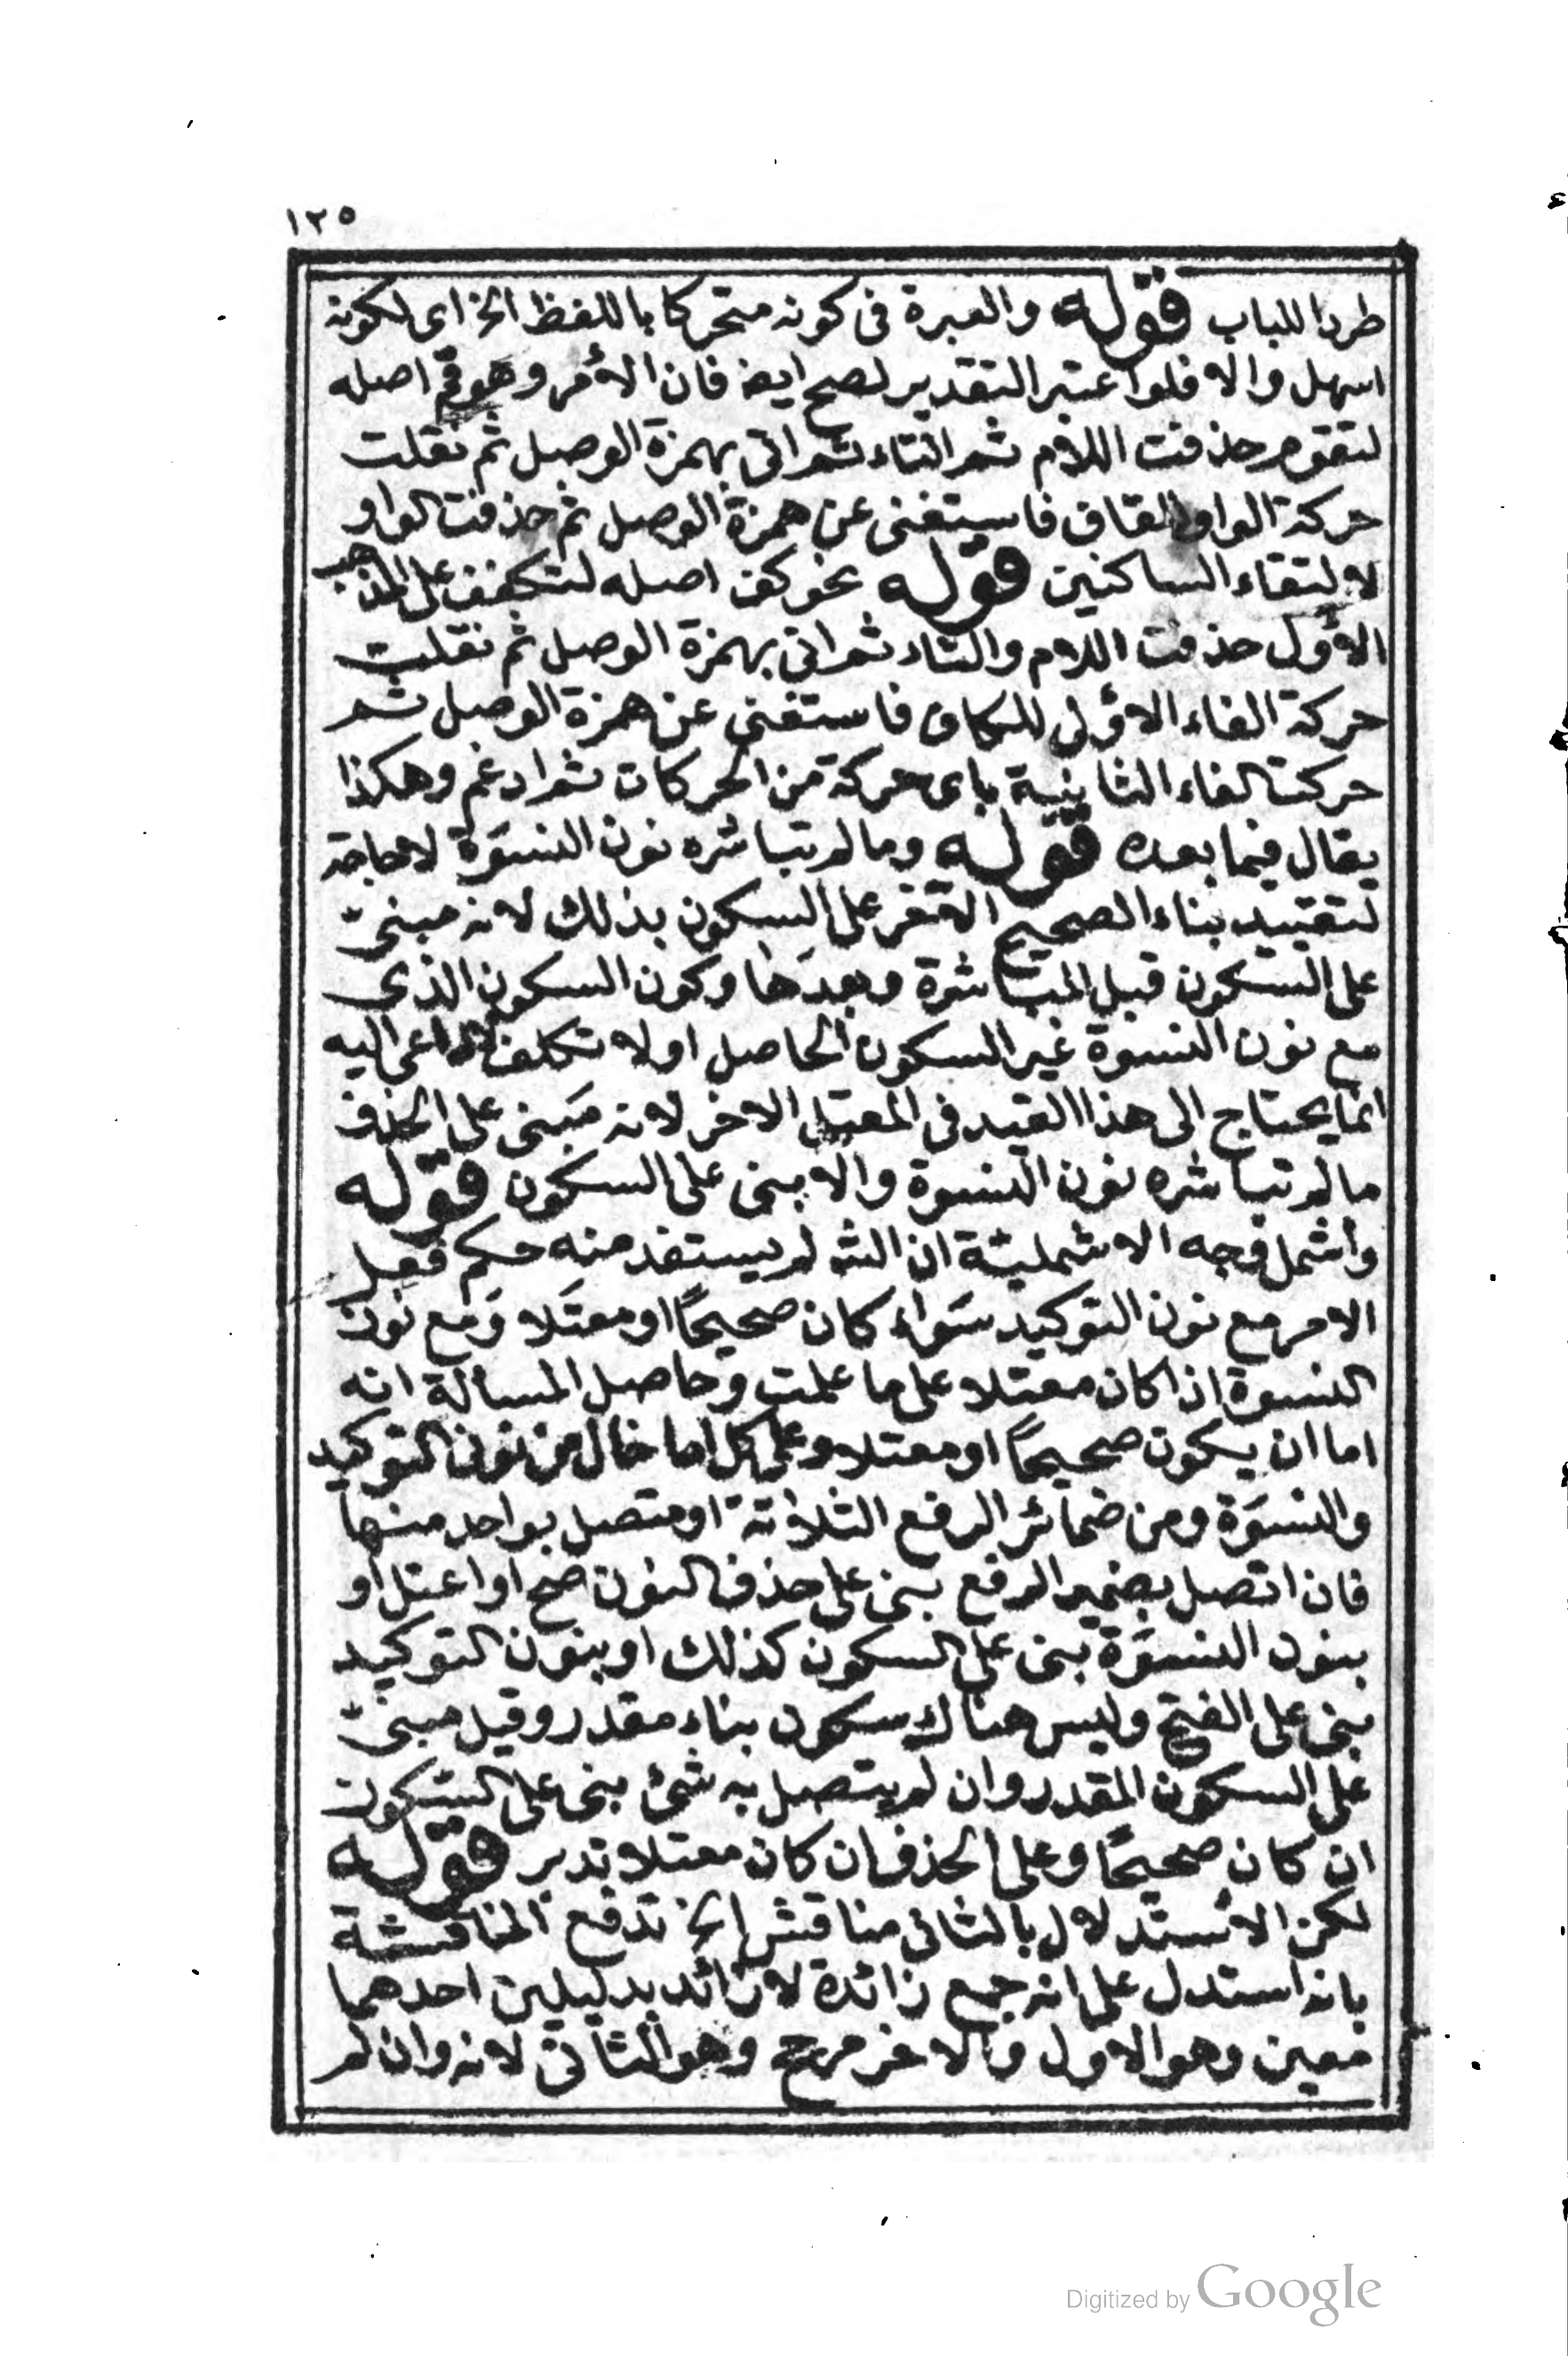 ١٢٥
طردا للباب قوله والعبرة فى كونه متحركا باللفظ الخ اى لكونه
اسهل والا فلو اعتبر التقدير لصح ايضا فان الأمر وهو قم اصله
لتقوم حذفت اللام ثم التاء ثم اتى بهمزة الوصل ثم نقلت
حركة الواو للقاف فاستغنى عن همزة الوصل ثم حذفت الواو
لالتقاء الساكنين قوله نحو كف اصله لتكفف على المذهب
الأول حذفت اللام والتاء ثم اتى بهمزة الوصل ثم نقلت
حركة الفاء الاولى للكاف فاستغنى عن همزة الوصل ثم
حركت الفاء الثانية باى حركة من الحركات ثم ادغم وهكذا
يقال فيما بعده قوله وما لم تباشره نون النسوة لا حاجة
لتقييد بناء الصحيح الاخر على السكون بذلك لانه مبنى
على السكون قبل المباشرة وبعدها وكون السكون الذى
مع نون النسوة غير السكون الحاصل اولا تكلف لا داعى اليه
انما يحتاج الى هذا القيد فى المعتل الاخر لانه مبنى على الحذف
ما لم تباشره نون النسوة والا بنى على السكون قوله
وأشمل وجه الاشملية ان الشـ لم يستفد منه حكم فعل
الامر مع نون التوكيد سواء كان صحيحًا او معتلا ومع نون
النسوة اذا كان معتلا على ما علمت وحاصل المسألة انه
اما ان يكون صحيحًا او معتلا وعلى كل اما خال من نونى التوكيد
والنسوة ومن ضمائر الرفع الثلاثة او متصل بواحد منها
فان اتصل بضمير الرفع بنى على حذف النون صح او اعتل او
بنون النسوة بنى على السكون كذلك او بنون التوكيد
بنى على الفتح وليس هناك سكون بناء مقدر وقيل مبنى
على السكون المقدر وان لم يتصل به شئ بنى على السكون
ان كان صحيحًا وعلى الحذف ان كان معتلا تدبر قوله
لكن الاستدلال بالثانى مناقش الخ تدفع المناقشة
بانه استدل على انه جمع زائدة لا زائد بدليلين احدهما
معين وهو الاول والاخر مرجح وهو الثانى لانه وان لم
Digitized by Google